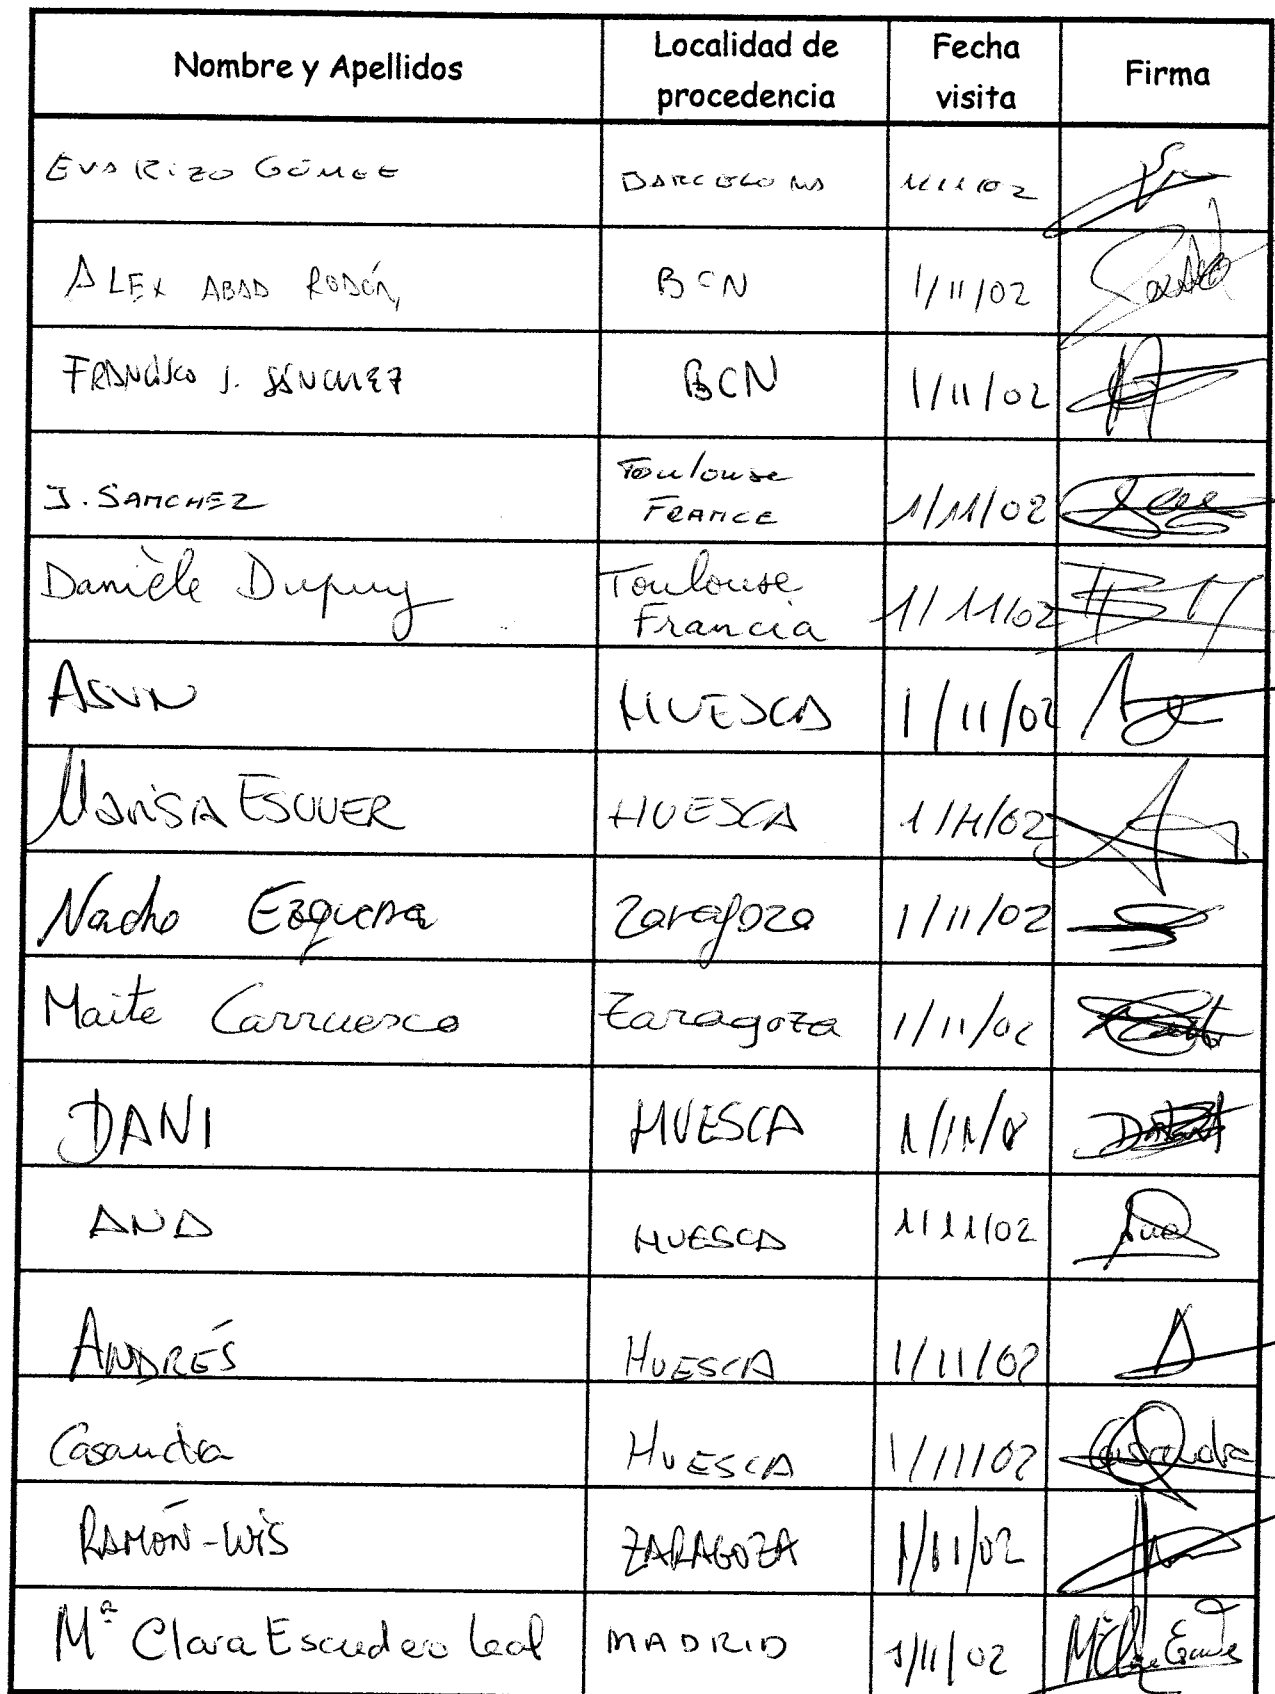 Nombre y Apellidos Localidad de procedencia Fecha visita Firma
EVA RIZO GÓMEZ BARCELONA 1/11/02
ALEX ABAD RODÓN BCN 1/11/02
FRANCISCO J. SÁNCHEZ BCN 1/11/02
J. SANCHEZ Toulouse FRANCE 1/11/02
Danièle Dupuy Toulouse Francia 1/11/02
ASUN HUESCA 1/11/02
MARISA ESCUER HUESCA 1/11/02
Nacho Ezquerra Zaragoza 1/11/02
Maite Carruesco Zaragoza 1/11/02
DANI HUESCA 1/11/
ANA HUESCA 1/11/02 Ana
ANDRÉS HUESCA 1/11/02
Casandra HUESCA 1/11/02 Casandra
RAMÓN-LUIS ZARAGOZA 1/11/02
Mª Clara Escudero Leal MADRID 1/11/02